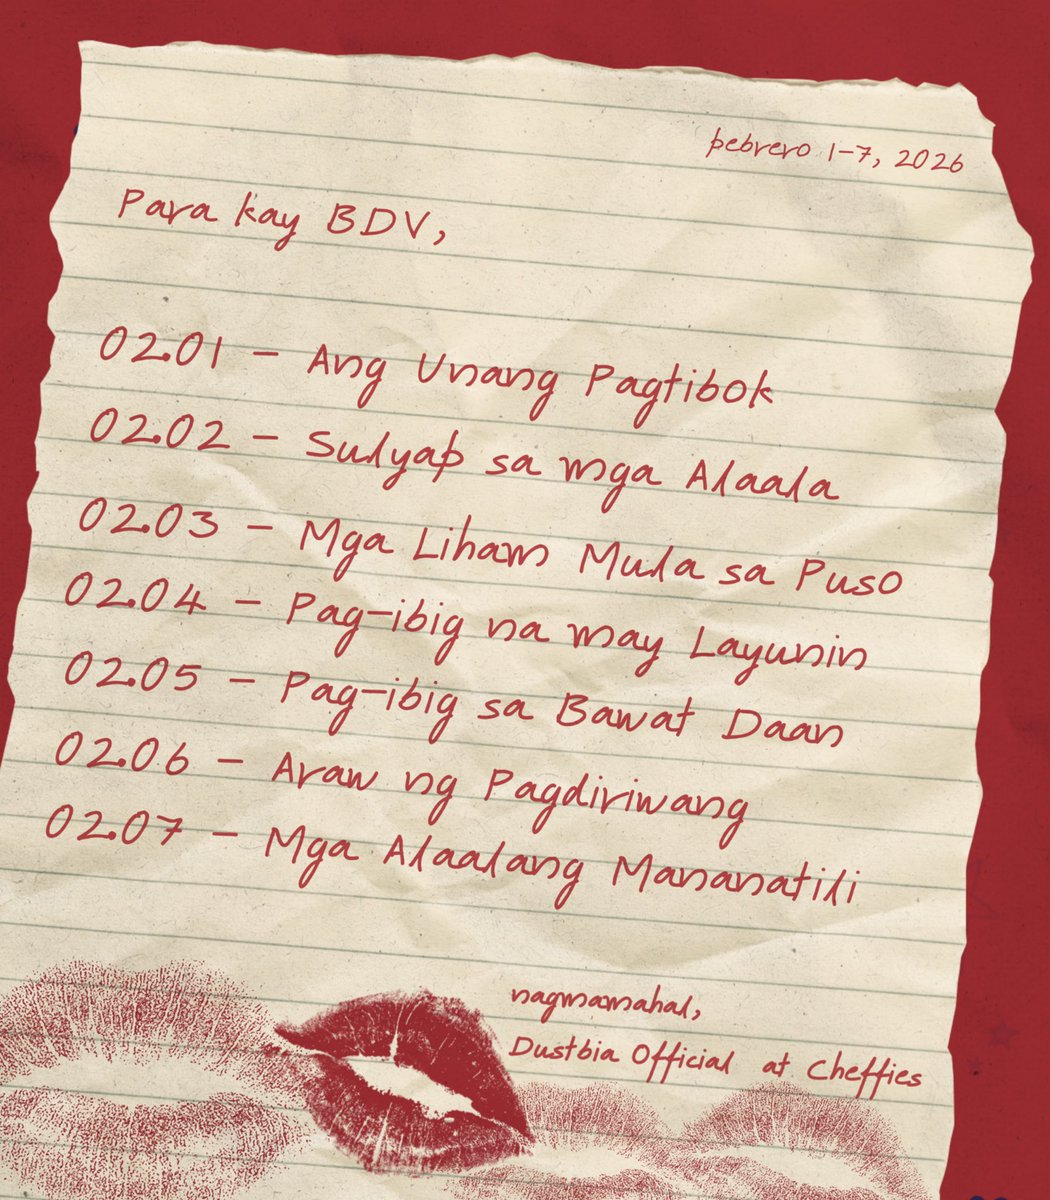 pebrero 1-7, 2026
Para kay BDV,
02.01 - Ang Unang Pagtibok
02.02 - Sulyap sa mga Alaala
02.03 - Mga Liham Mula sa Puso
02.04 - Pag-ibig na may Layunin
02.05 - Pag-ibig sa Bawat Daan
02.06 - Araw ng Pagdiriwang
02.07 - Mga Alaalang Mananatili
nagmamahal,
Dustbia Official at Cheffies